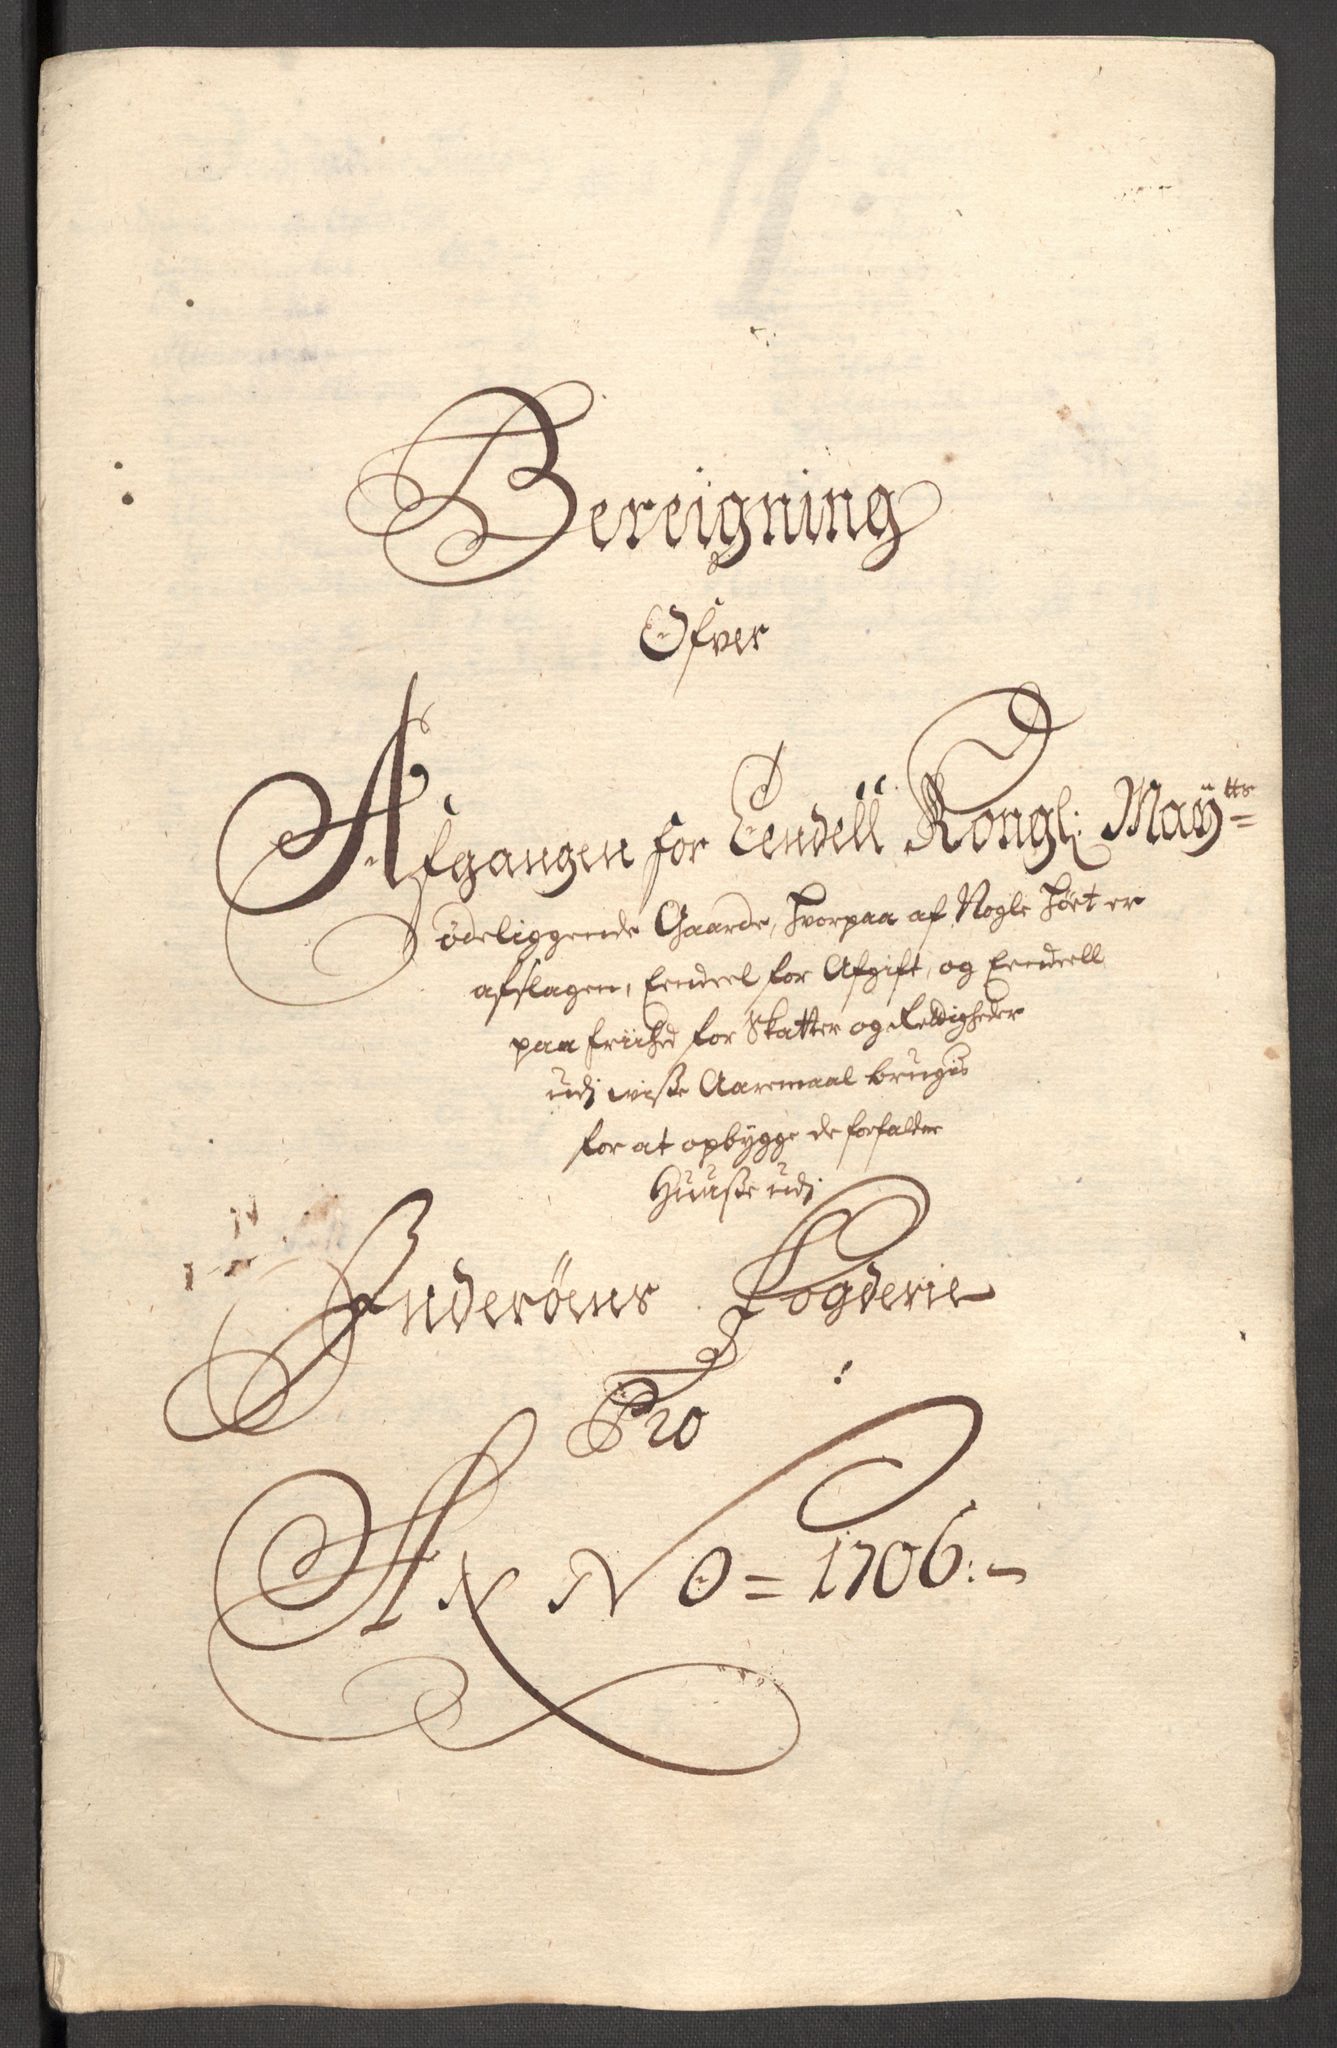 Bereigning
Ofver
Afgangen for Eendell Kongl: Maÿtts=
ödeliggende Gaarde, hvorpaa af Nogle höet er
afslagen, Eendeel for Afgift, og Eendeell
paa friihed for Skatter og Rettigheder
udj wisse Aaremaal brugis
for at opbÿgge de forfalder
Huusse udj
Inderöens Fogderie
Pro
ANNO = 1706.